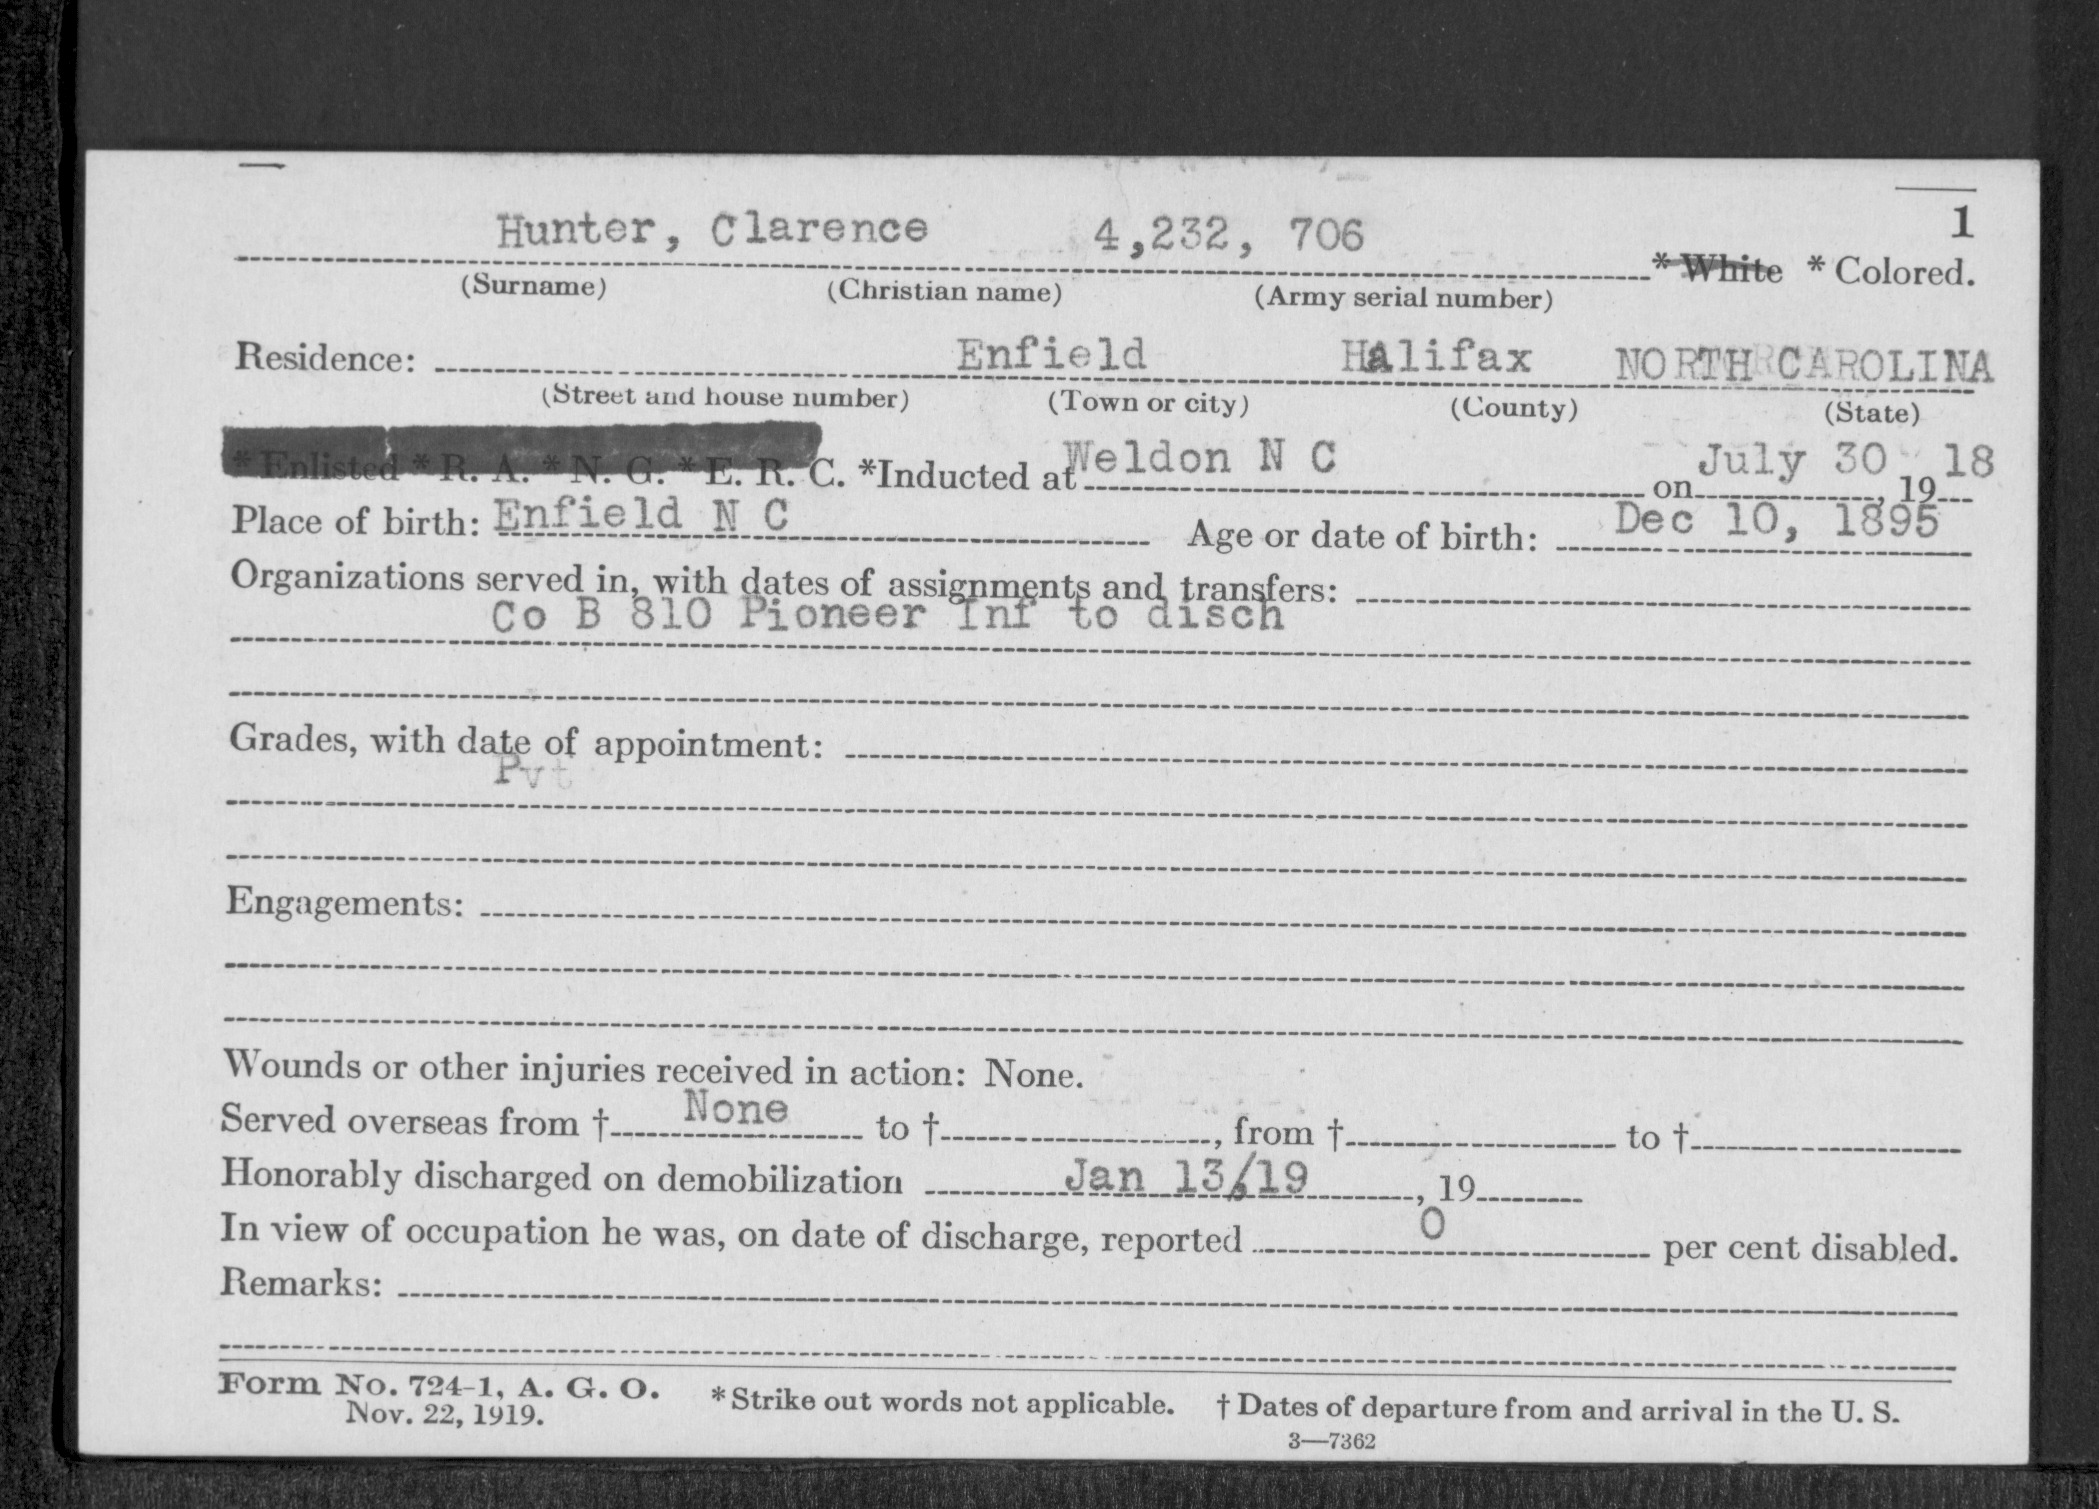 1
Hunter, Clarence 4,232, 706 * White * Colored.
(Surname) (Christian name) (Army serial number)
Residence: Enfield Halifax NORTH CAROLINA
(Street and house number) (Town or city) (County) (State)
* Enlisted * R. A. * N. G. * E. R. C. *Inducted at Weldon N C on July 30, 1918
Place of birth: Enfield N C Age or date of birth: Dec 10, 1895
Organizations served in, with dates of assignments and transfers:
Co B 810 Pioneer Inf to disch
Grades, with date of appointment:
Pvt
Engagements:
Wounds or other injuries received in action: None.
Served overseas from † None to † , from † to †
Honorably discharged on demobilization Jan 13/19 , 19
In view of occupation he was, on date of discharge, reported 0 per cent disabled.
Remarks:
Form No. 724-1, A. G. O. * Strike out words not applicable. † Dates of departure from and arrival in the U. S.
Nov. 22, 1919.
3—7362